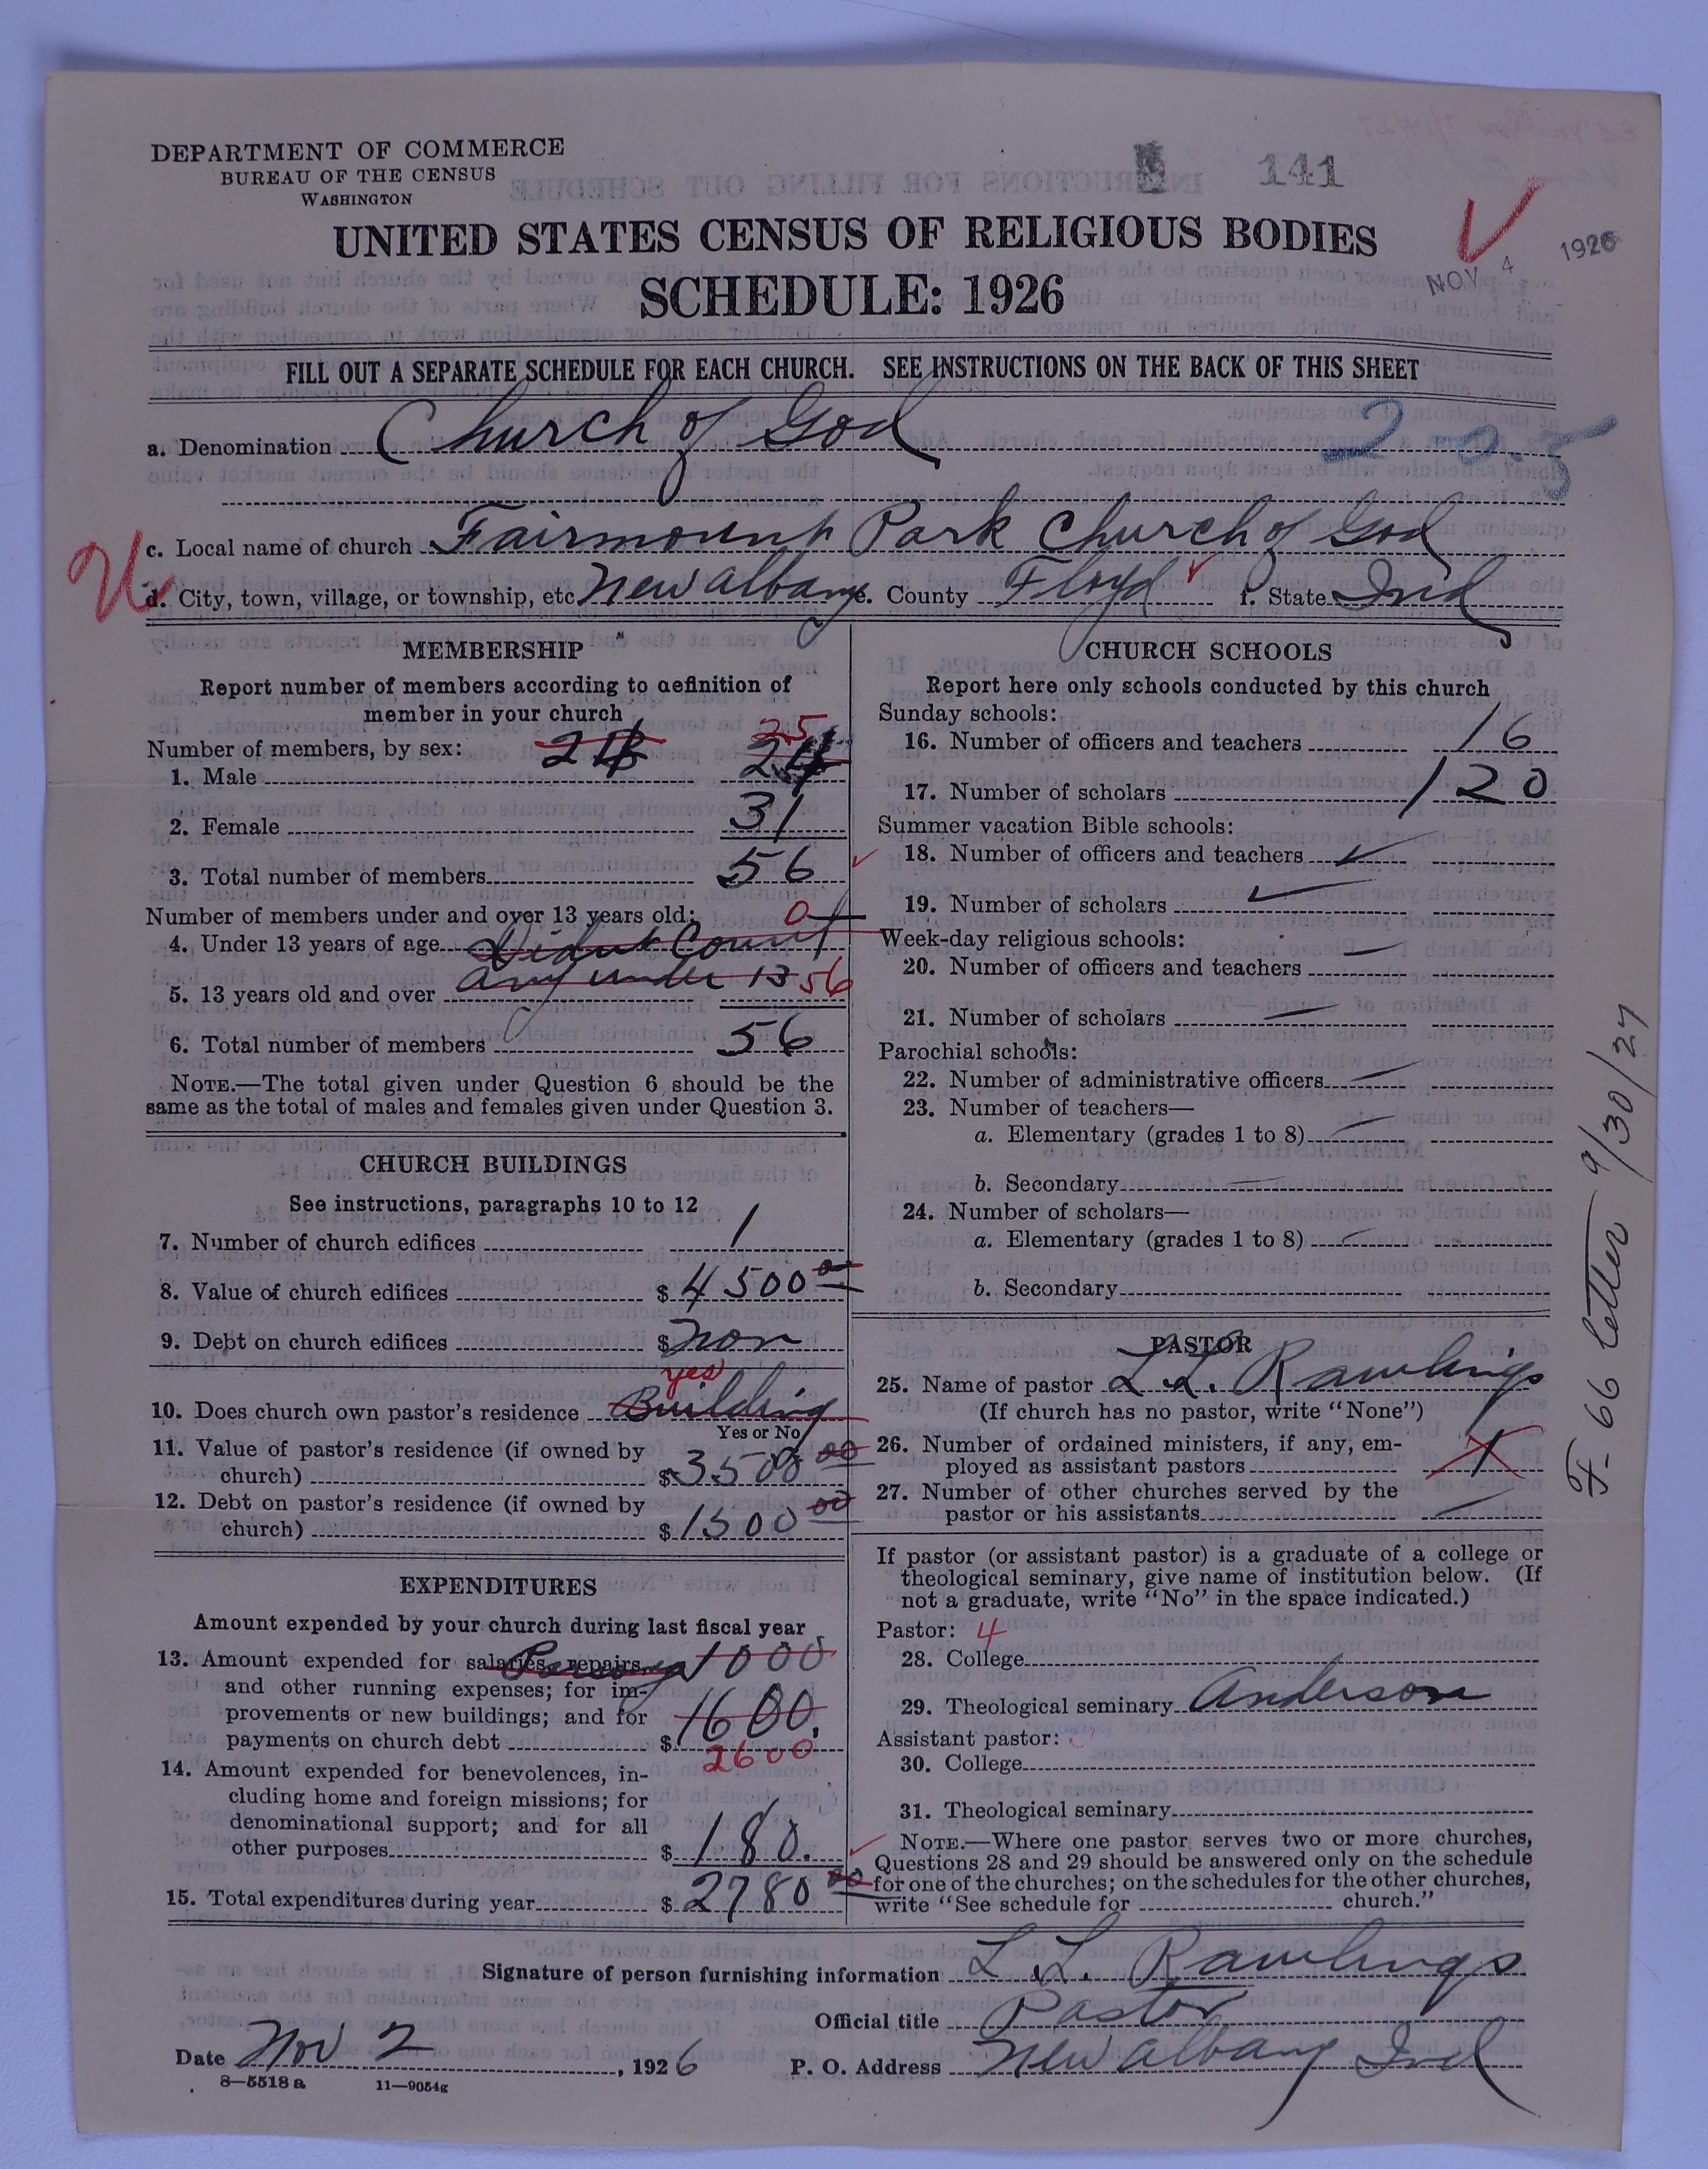 DEPARTMENT OF COMMERCE
BUREAU OF THE CENSUS
WASHINGTON
141
UNITED STATES CENSUS OF RELIGIOUS BODIES
SCHEDULE: 1926
NOV 4 1926
FILL OUT A SEPARATE SCHEDULE FOR EACH CHURCH. SEE INSTRUCTIONS ON THE BACK OF THIS SHEET
a. Denomination Church of God
2 0.5
c. Local name of church Fairmount Park Church of God
d. City, town, village, or township, etc. New Albany e. County Floyd f. State Ind
MEMBERSHIP
Report number of members according to definition of
member in your church
Number of members, by sex:
25
1. Male 24 24
2. Female 31
3. Total number of members 56
Number of members under and over 13 years old:
0
4. Under 13 years of age Didnt Count
5. 13 years old and over any under 13 56
6. Total number of members 56
NOTE.—The total given under Question 6 should be the
same as the total of males and females given under Question 3.
CHURCH BUILDINGS
See instructions, paragraphs 10 to 12
7. Number of church edifices 1
8. Value of church edifices $ 4500 00
9. Debt on church edifices $ Non
yes
10. Does church own pastor's residence Building
Yes or No
11. Value of pastor's residence (if owned by
church) $ 3500 00
12. Debt on pastor's residence (if owned by
church) $ 1500 00
EXPENDITURES
Amount expended by your church during last fiscal year
13. Amount expended for salaries, repairs, 1000
and other running expenses; for im-
provements or new buildings; and for
payments on church debt $ 1600.
2600
14. Amount expended for benevolences, in-
cluding home and foreign missions; for
denominational support; and for all
other purposes $ 180.
15. Total expenditures during year $ 2780 00
CHURCH SCHOOLS
Report here only schools conducted by this church
Sunday schools:
16. Number of officers and teachers 16
17. Number of scholars 120
Summer vacation Bible schools:
18. Number of officers and teachers
19. Number of scholars
Week-day religious schools:
20. Number of officers and teachers
21. Number of scholars
Parochial schools:
22. Number of administrative officers
23. Number of teachers—
a. Elementary (grades 1 to 8)
b. Secondary
24. Number of scholars—
a. Elementary (grades 1 to 8)
b. Secondary
PASTOR
25. Name of pastor L. L. Rawlings
(If church has no pastor, write "None")
26. Number of ordained ministers, if any, em-
ployed as assistant pastors 1
27. Number of other churches served by the
pastor or his assistants
If pastor (or assistant pastor) is a graduate of a college or
theological seminary, give name of institution below. (If
not a graduate, write "No" in the space indicated.)
Pastor: 4
28. College
29. Theological seminary Anderson
Assistant pastor:
30. College
31. Theological seminary
NOTE.—Where one pastor serves two or more churches,
Questions 28 and 29 should be answered only on the schedule
for one of the churches; on the schedules for the other churches,
write "See schedule for church."
F-66 letter 9/30/27
Signature of person furnishing information L. L. Rawlings
Official title Pastor
Date Nov 2, 1926 P. O. Address New Albany Ind
8—5518 a 11—9054g